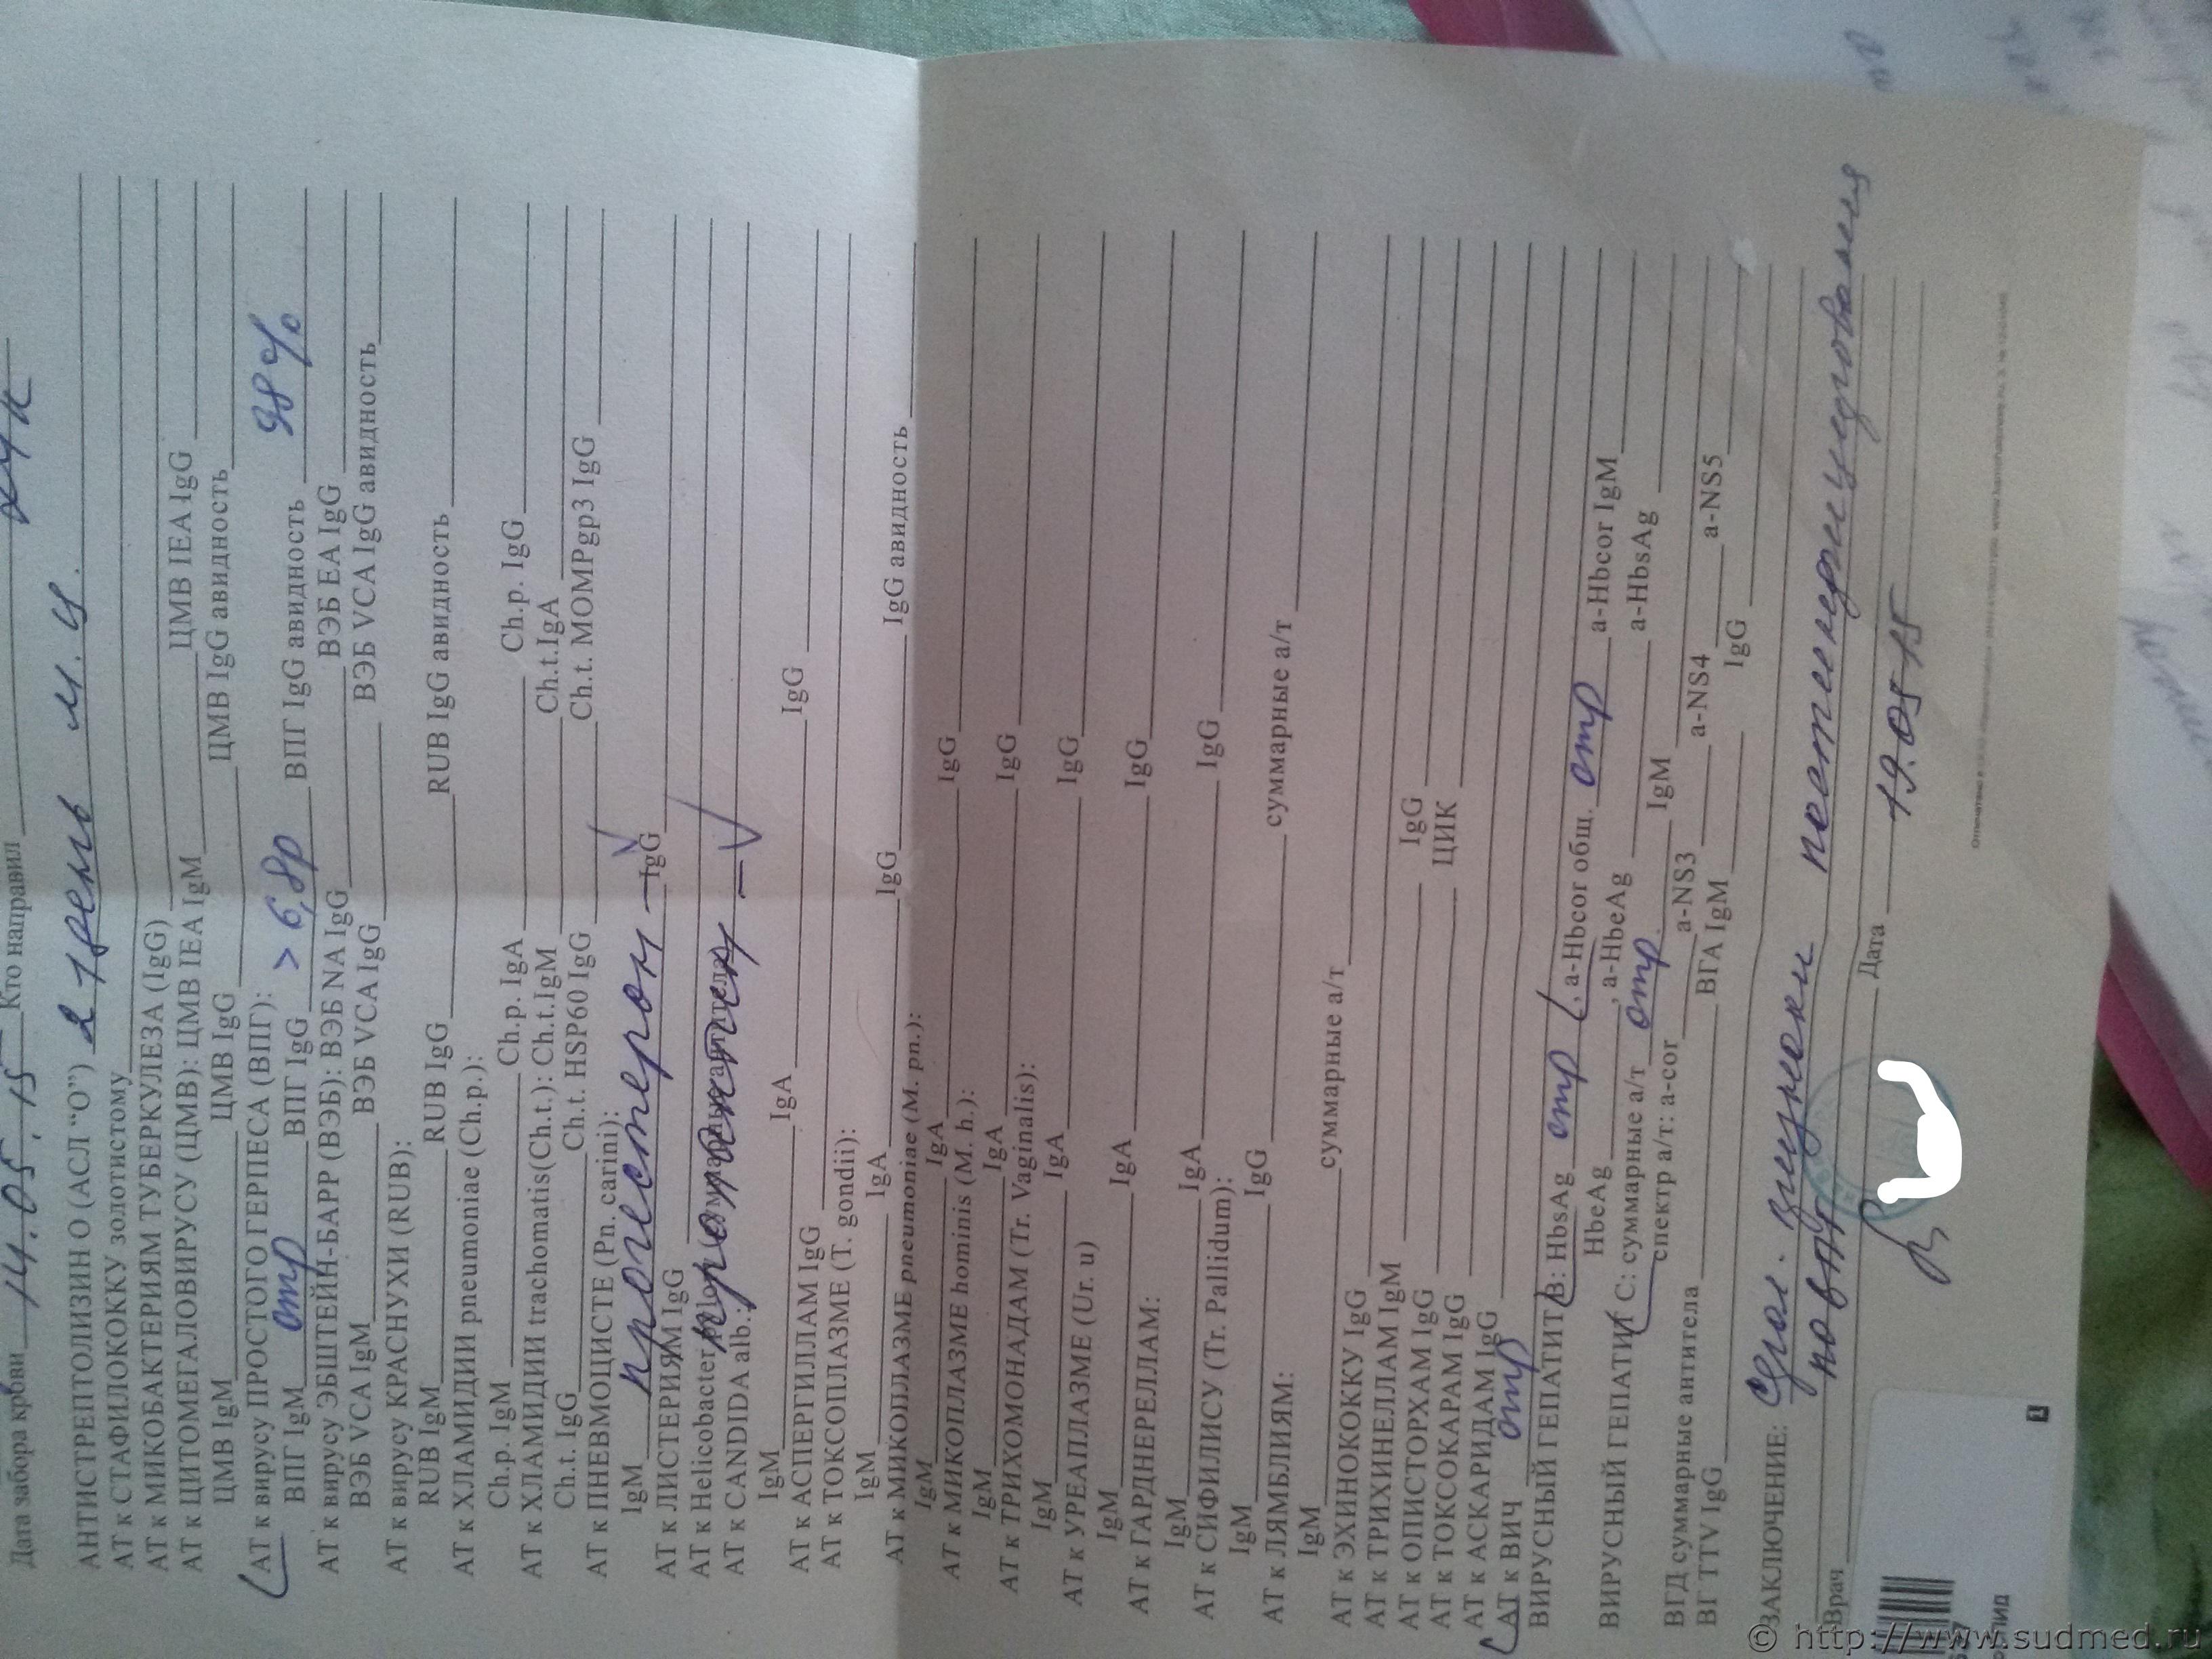 Дата забора крови 14.05.15 Кто направил
АНТИСТРЕПТОЛИЗИН О (АСЛ "О") 2 трень м.ц.
АТ к СТАФИЛОКОККУ золотистому
АТ к МИКОБАКТЕРИЯМ ТУБЕРКУЛЕЗА (IgG)
АТ к ЦИТОМЕГАЛОВИРУСУ (ЦМВ): ЦМВ IEA IgM ЦМВ IEA IgG
ЦМВ IgM ЦМВ IgG ЦМВ IgG авидность
АТ к вирусу ПРОСТОГО ГЕРПЕСА (ВПГ):
ВПГ IgM отр ВПГ IgG > 6,8р ВПГ IgG авидность 98%
АТ к вирусу ЭБШТЕЙН-БАРР (ВЭБ): ВЭБ NA IgG ВЭБ EA IgG
ВЭБ VCA IgM ВЭБ VCA IgG ВЭБ VCA IgG авидность
АТ к вирусу КРАСНУХИ (RUB):
RUB IgM RUB IgG RUB IgG авидность
АТ к ХЛАМИДИИ pneumoniae (Ch.p.):
Ch.p. IgM Ch.p. IgA Ch.p. IgG
АТ к ХЛАМИДИИ trachomatis(Ch.t.): Ch.t.IgM Ch.t.IgA
Ch.t. IgG Ch.t. HSP60 IgG Ch.t. MOMPgp3 IgG
АТ к ПНЕВМОЦИСТЕ (Pn. carini):
IgM прогестерон — IgG
АТ к ЛИСТЕРИЯМ IgG
АТ к Helicobacter
АТ к CANDIDA alb.: пролактин —
IgM IgA IgG
АТ к АСПЕРГИЛЛАМ IgG
АТ к ТОКСОПЛАЗМЕ (T. gondii):
IgM IgA IgG IgG авидность
АТ к МИКОПЛАЗМЕ pneumoniae (M. pn.):
IgM IgA IgG
АТ к МИКОПЛАЗМЕ hominis (M. h.):
IgM IgA IgG
АТ к ТРИХОМОНАДАМ (Tr. Vaginalis):
IgM IgA IgG
АТ к УРЕАПЛАЗМЕ (Ur. u)
IgM IgA IgG
АТ к ГАРДНЕРЕЛЛАМ:
IgM IgA IgG
АТ к СИФИЛИСУ (Tr. Pallidum):
IgM IgG суммарные а/т
АТ к ЛЯМБЛИЯМ:
IgM суммарные а/т
АТ к ЭХИНОКОККУ IgG
АТ к ТРИХИНЕЛЛАМ IgM IgG
АТ к ОПИСТОРХАМ IgG ЦИК
АТ к ТОКСОКАРАМ IgG
АТ к АСКАРИДАМ IgG
АТ к ВИЧ отр
ВИРУСНЫЙ ГЕПАТИТ В: HbsAg отр , a-Hbcor общ. отр a-Hbcor IgM
HbeAg , a-HbeAg a-HbsAg
ВИРУСНЫЙ ГЕПАТИТ С: суммарные а/т отр. IgM
спектр а/т: a-cor a-NS3 a-NS4 a-NS5
ВГД суммарные антитела ВГА IgM IgG
ВГ TTV IgG
ЗАКЛЮЧЕНИЕ:
Врач Дата 19.05.15
© http://www.sudmed.ru